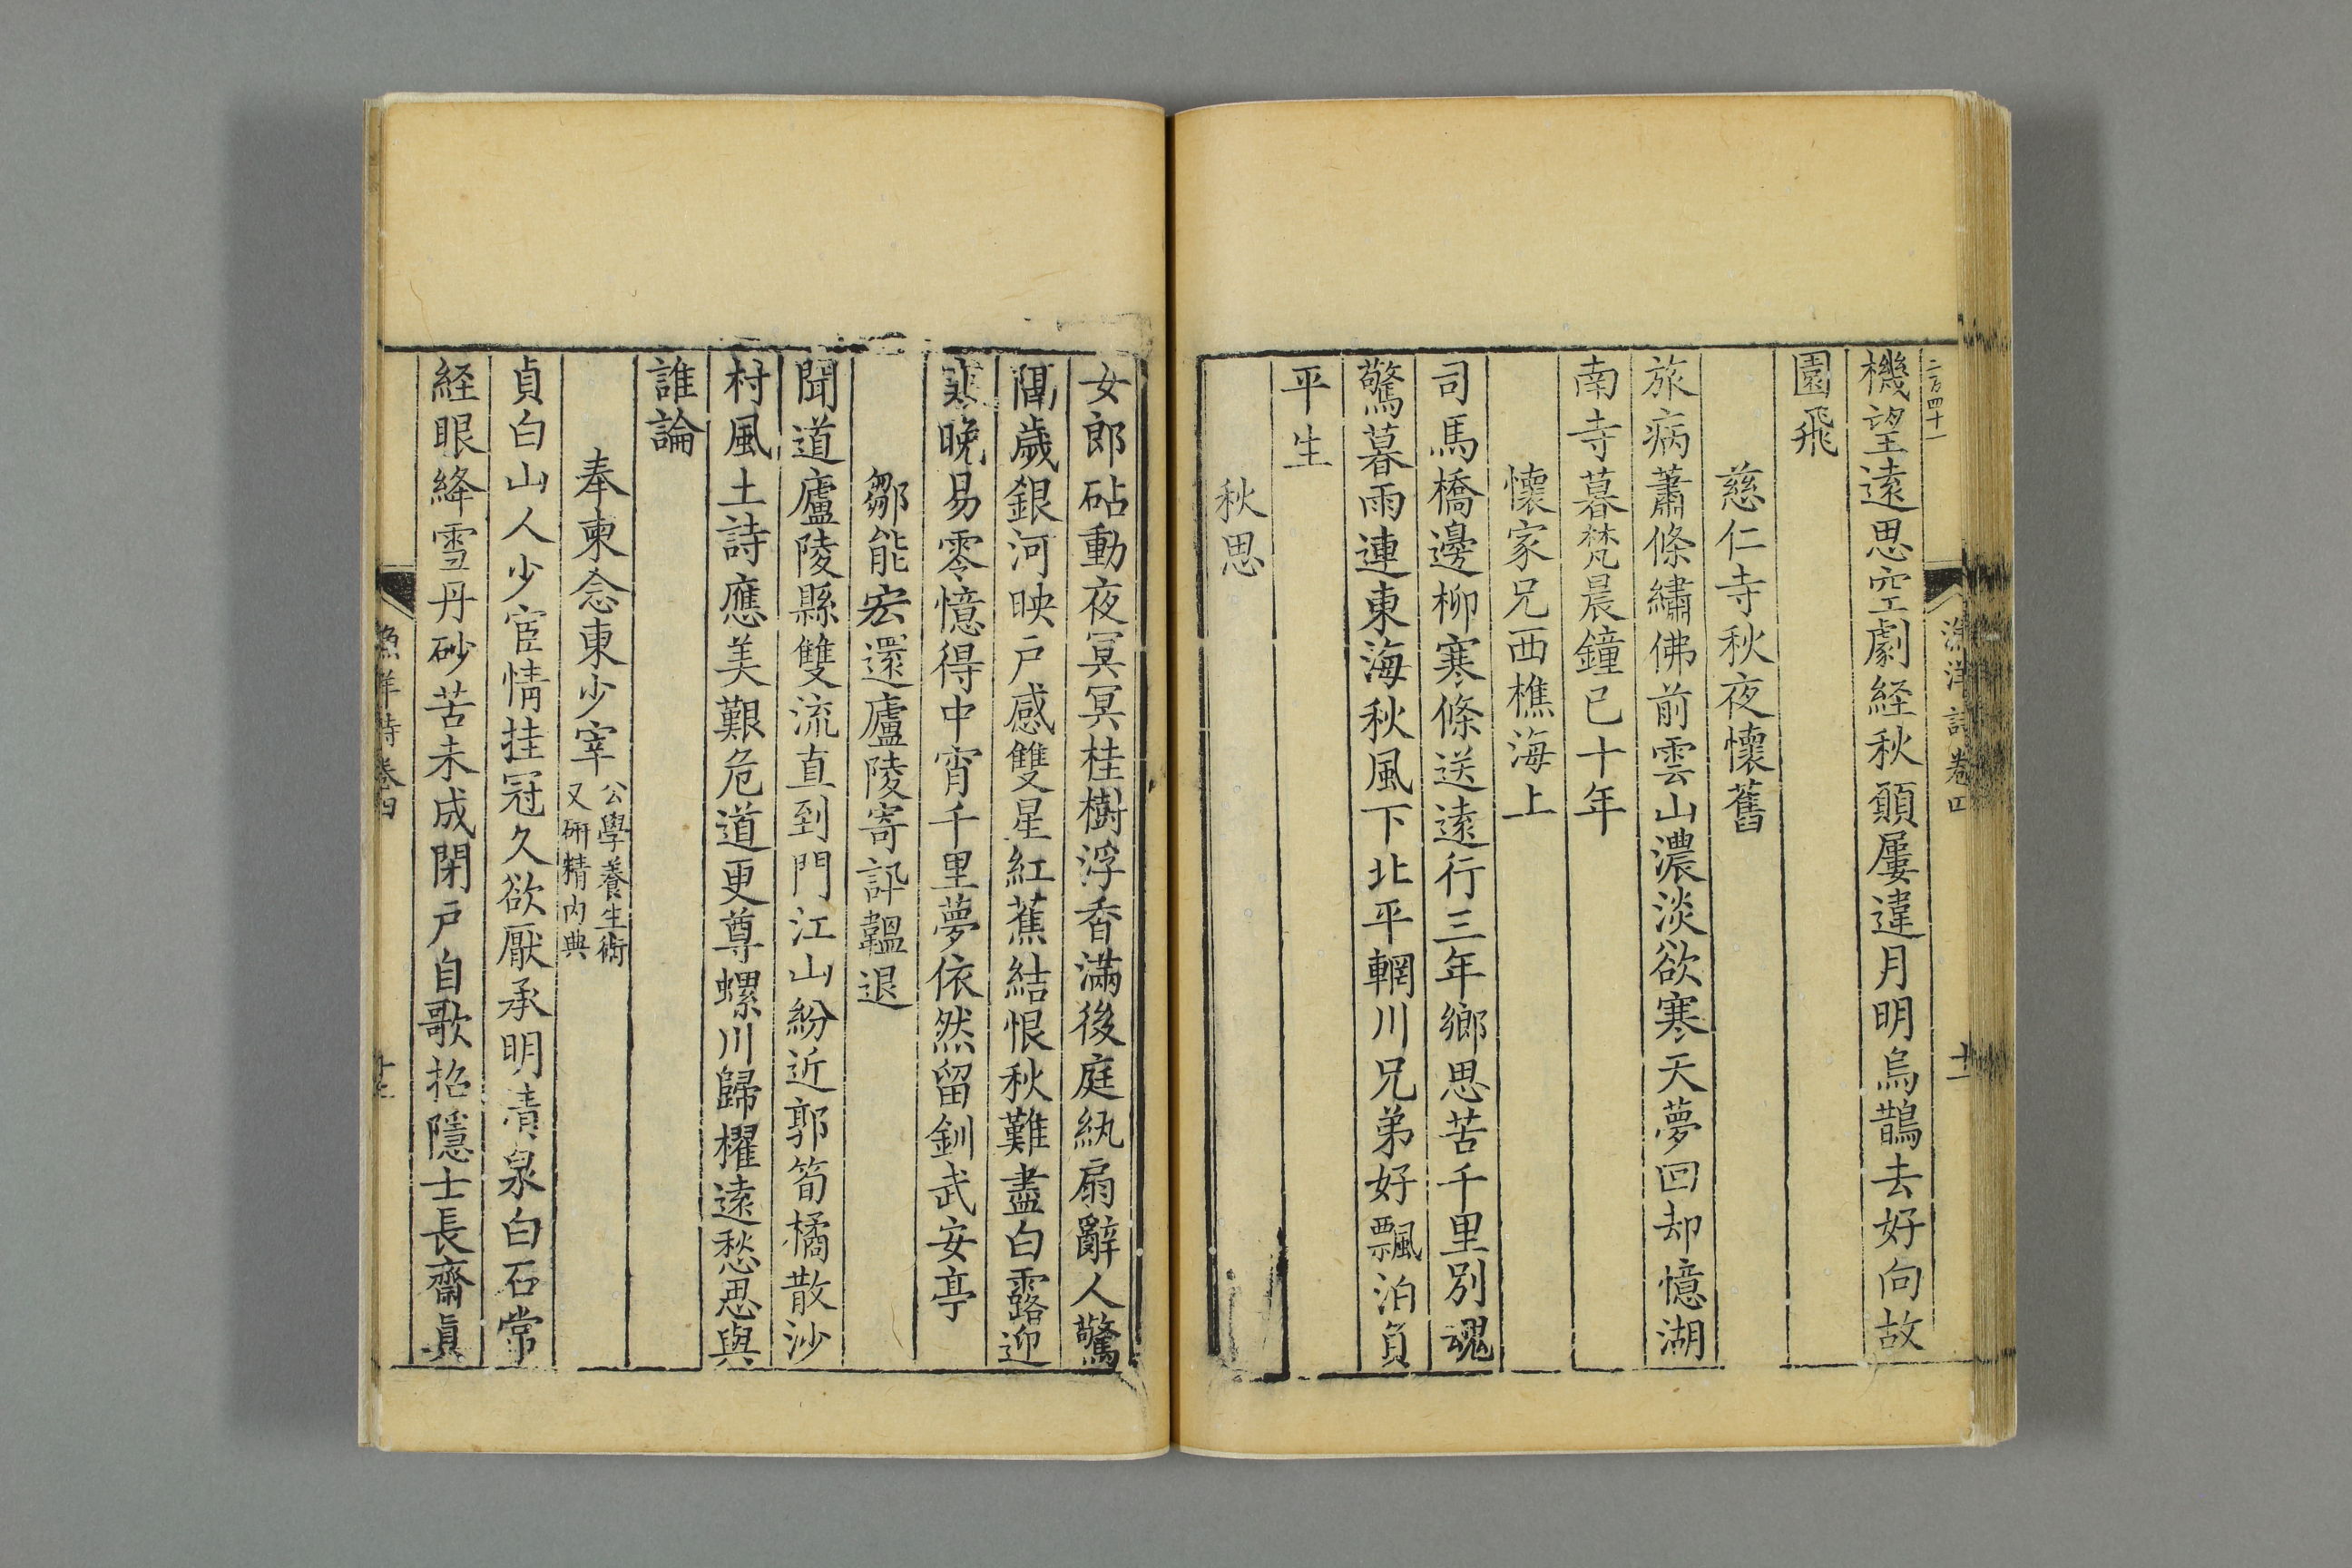 二百四十一
漁洋詩卷四
十一
機望遠思空劇経秋願屢違月明烏鵲去好向故
園飛
慈仁寺秋夜懷舊
旅病蕭條繡佛前雲山濃淡欲寒天夢回却憶湖
南寺暮梵晨鐘已十年
懷家兄西樵海上
司馬橋邊柳寒條送遠行三年鄉思苦千里別魂
驚暮雨連東海秋風下北平輞川兄弟好飄泊負
平生
秋思
女郎砧動夜冥冥桂樹浮香滿後庭紈扇辭人驚
隔歲銀河映戶感雙星紅蕉結恨秋難盡白露迎
寒晚易零憶得中宵千里夢依然留釧武安亭
鄒能宏還廬陵寄訊韞退
聞道廬陵縣雙流直到門江山紛近郭筍橘散沙
村風土詩應美艱危道更尊螺川歸櫂遠愁思與
誰論
奉柬念東少宰公學養生術
又研精內典
貞白山人少宦情挂冠久欲厭承明清泉白石常
経眼絳雪丹砂苦未成閉戸自歌招隱士長齋真
漁洋詩卷四